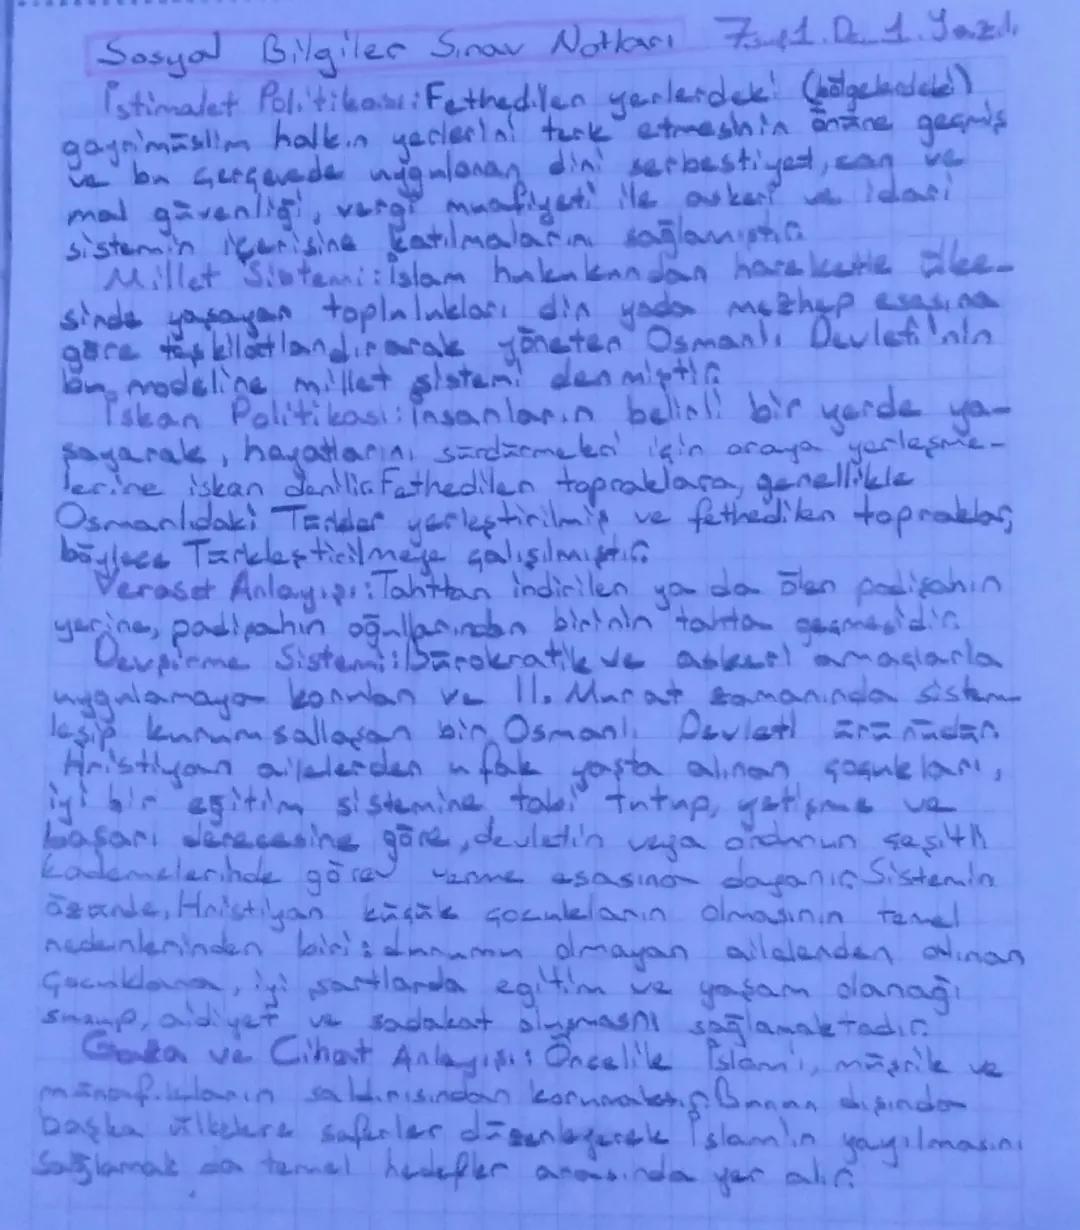 Sosyal Bilgiler Sınav Notları 7.Sınıf 1.D. 1.Yazılı
İstimalet Politikası: Fethedilen yerlerdeki (bölgelerdeki)
gayrimüslim halkın yerlerini terk etmesinin önüne geçmiş
ve bu çerçevede uygulanan dini serbestiyet, can ve
mal güvenliği, vergi muafiyeti ile askeri ve idari
sistemin içerisine katılmalarını sağlamıştır.
Millet Sistemi: İslam hukukundan hareketle ülke-
sinde yaşayan toplulukları din yada mezhep esasına
göre teşkilatlandırarak yöneten Osmanlı Devleti'nin
bu modeline millet sistemi denmiştir.
İskan Politikası: İnsanların belirli bir yerde ya-
şayarak, hayatlarını sürdürmeleri için oraya yerleşme-
lerine iskan denilir. Fethedilen topraklara, genellikle
Osmanlıdaki Türkler yerleştirilmiş ve fethedilen topraklar,
böylece Türkleştirilmeye çalışılmıştır.
Veraset Anlayışı: Tahttan indirilen ya da ölen padişahın
yerine, padişahın oğullarından birinin tahta geçmesidir.
Devşirme Sistemi: Bürokratik ve askeri amaçlarla
uygulamaya konulan ve II. Murat zamanında sistem
leşip kurumsallaşan bir Osmanlı Devleti ürünüdür.
Hristiyan ailelerden ufak yaşta alınan çocukları,
iyi bir eğitim sistemine tabi tutup, yetişme ve
başarı derecesine göre, devletin veya ordunun çeşitli
kademelerinde görev verme esasına dayanır. Sistemin
özünde, Hristiyan küçük çocukların olmasının temel
nedenlerinden biri: durumu olmayan ailelerden alınan
çocuklara, iyi şartlarda egitim ve yaşam olanağı
sunup, aidiyet ve sadakat oluşmasnı sağlamaktadır.
Gaza ve Cihat Anlayışı: Öncelik İslam'ı, müşrik ve
münafıkların saldırısından korumaktır. Bunun dışında
başka ülkelere seferler düzenleyerek İslam'ın yayılmasını
sağlamak da temel hedefler arasında yer alır.